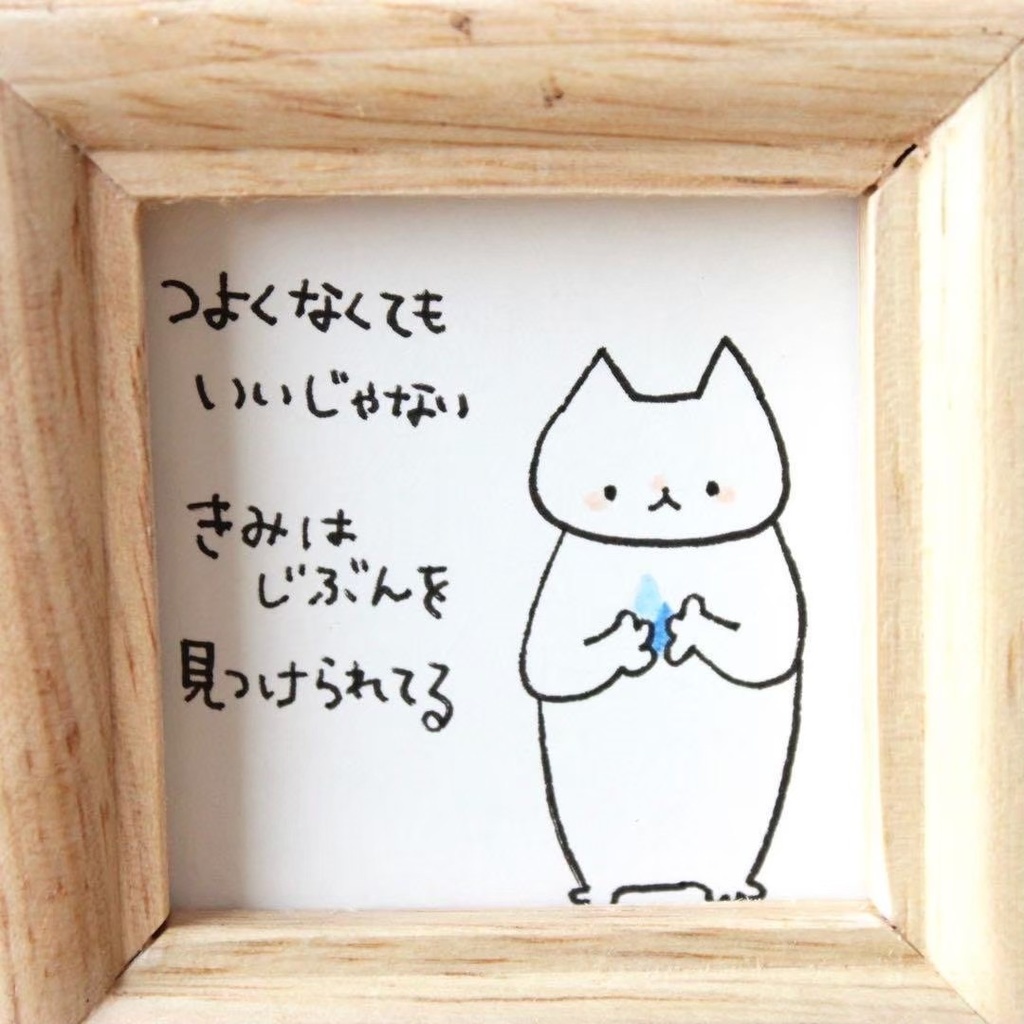 つよくなくても
いいじゃない
きみは
じぶんを
見つけられてる